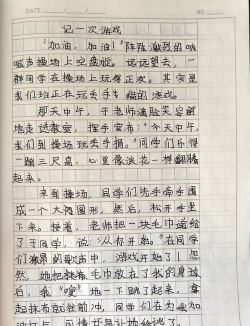 DATE
NO
记一次游戏
"加油，加油！"阵阵激烈的呐
喊声操场上空盘旋。远远望去，一
群同学在操场上玩得正欢。其实是
我们班正在玩丢手绢的游戏。
那天中午，于老师满脸笑容的
地走进教室，挥手宣布："今天中午，
我们到操场玩丢手捐。"同学们乐得
一蹦三尺高，心里像浪花一样翻腾
起来。
来到操场，同学们先手牵手围
成一个大椭圆形，然后，松开手坐
下来。接着，老师把一块毛巾递给
了王同学，说："从你开始。"在同学
们激昂的歌声中，游戏开始了！忽
然，她把抹布毛巾放在了我的身后
后，我"嗖"地一下跳了起来，拿
起抹布就往前冲，同学们在为我加
油打气，可惜还是让她给逃了。